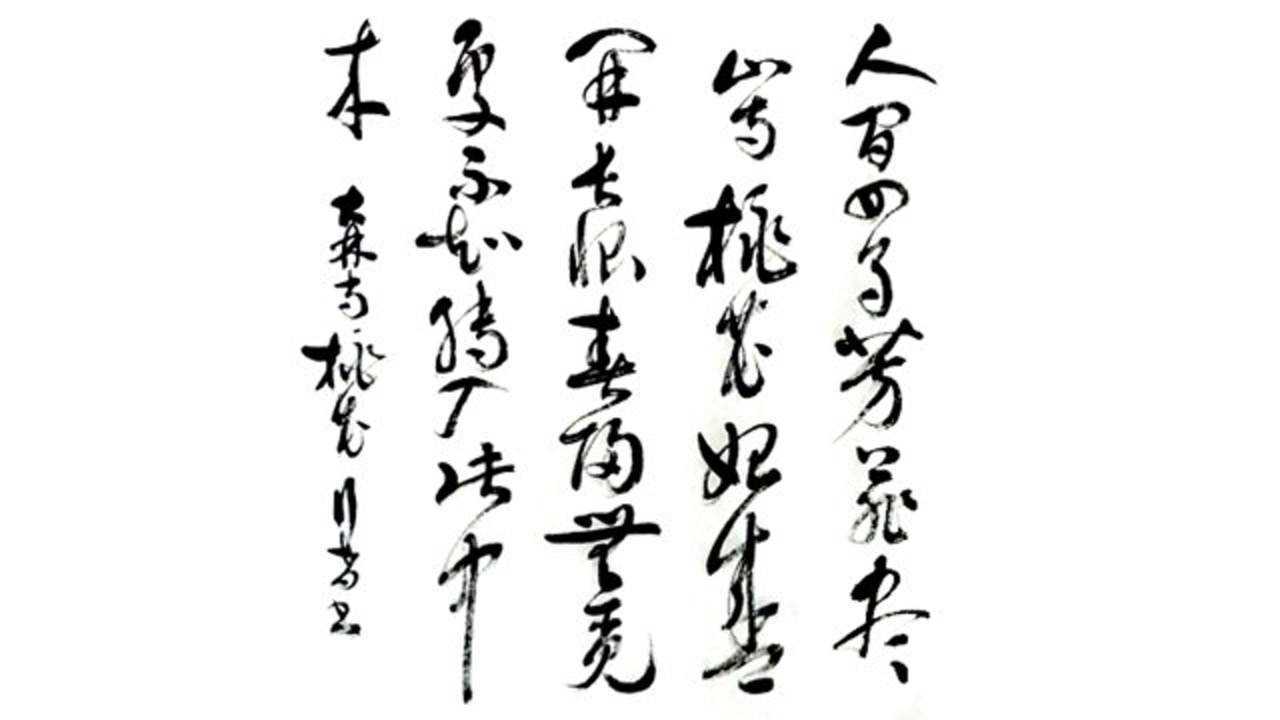 人间四月芳菲尽
山寺桃花始盛
开长恨春归无觅
处不知转入此中
来 大林寺桃花